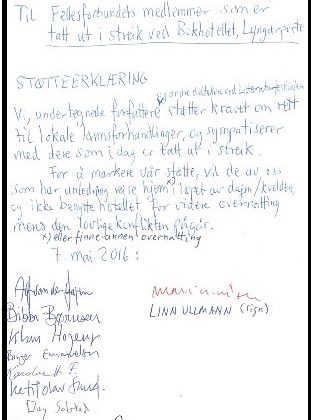 Til Fellesforbundets medlemmer som er
tatt ut i streik ved Bokhotellet, Lyngørporten
STØTTEERKLÆRING
og andre deltakere ved Litteraturfestivalen
Vi, undertegnede forfattere støtter kravet om rett
til lokale lønnsforhandlinger, og sympatiserer
med dere som i dag er tatt ut i streik.
For å markere vår støtte, vil de av oss
som har anledning reise hjem x) i løpet av dagen/kvelden,
og ikke benytte hotellet for videre overnatting
mens den lovlige konflikten pågår.
x) eller finne annen overnatting
7. mai 2016:
Bibbi Børresen
LINN ULLMANN (sign)
Klaus Hagerup
Birger Emanuelsen
Karoline H. F.
Ketil Olav
Dag Solstad